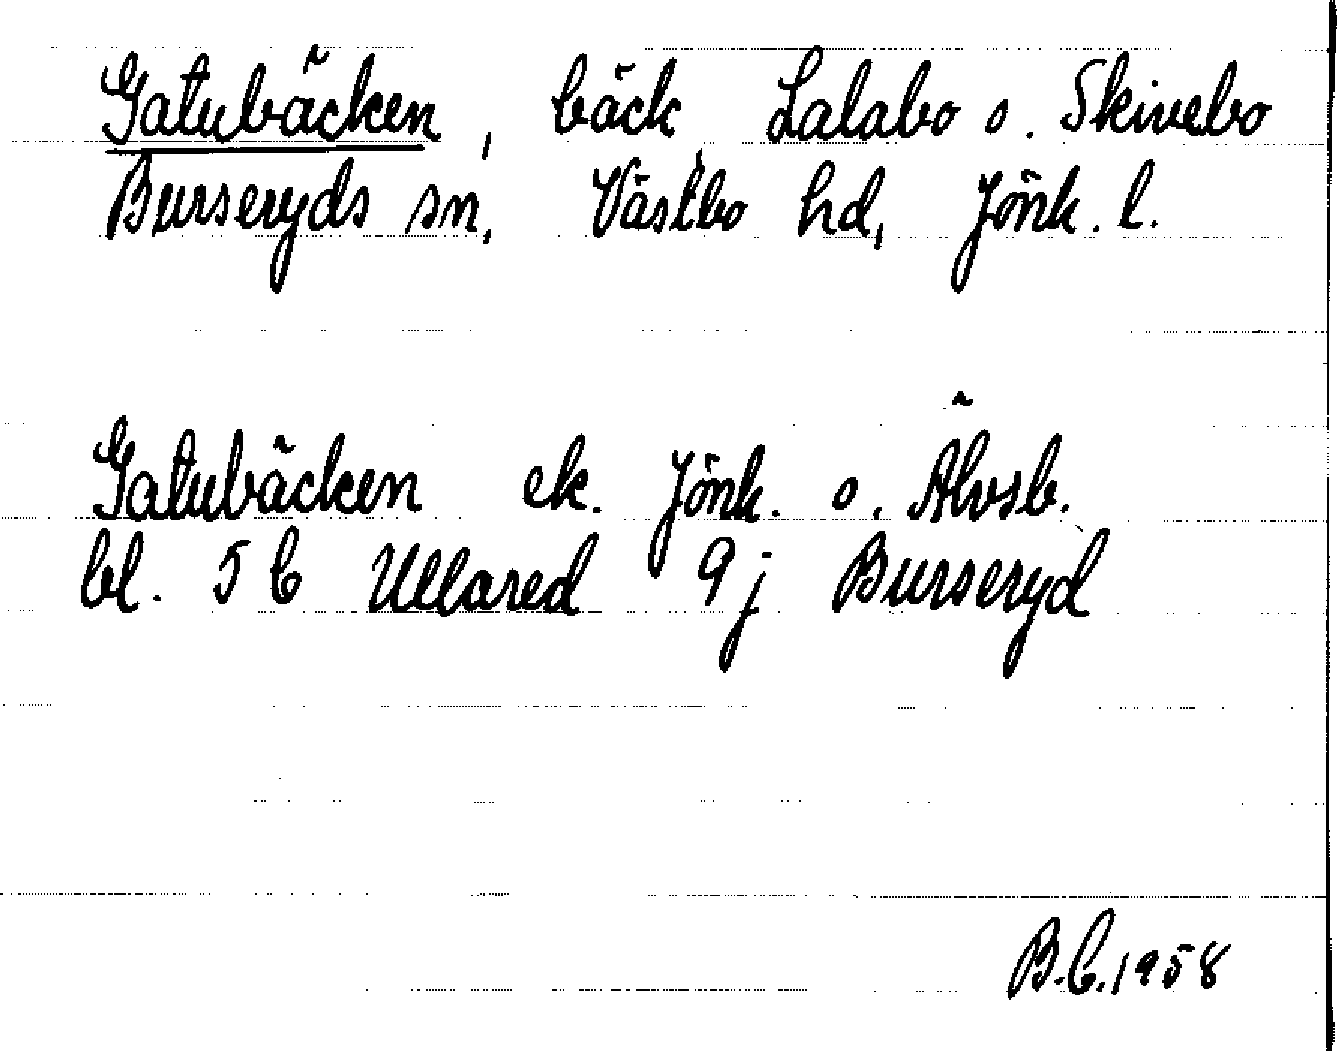 Gatubäcken, bäck, Lalabo o. Skivebo
Burseryds sn, Västbo hd, Jönk. l.
Gatubäcken ek. Jönk. o. Älvsb.
bl. 5 C Ullared 9 j Burseryd
B.C. 1958